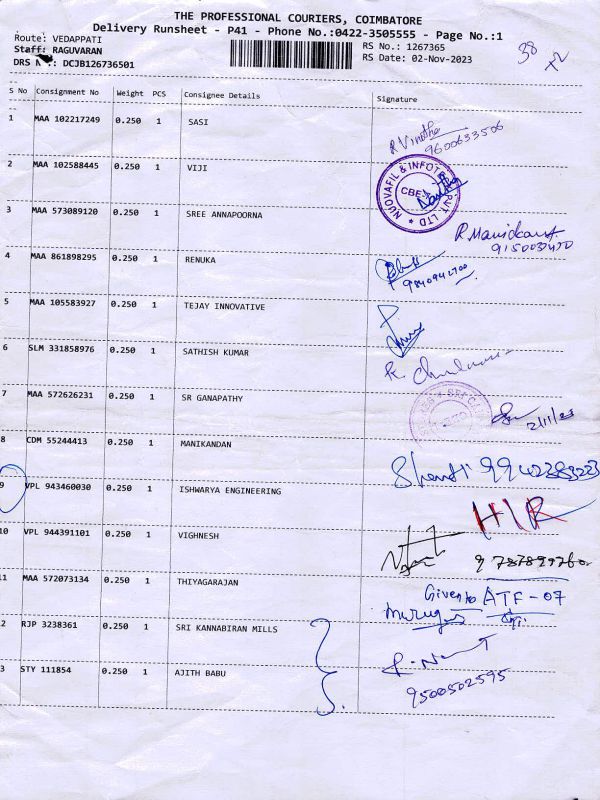 THE PROFESSIONAL COURIERS, COIMBATORE
Delivery Runsheet - P41 - Phone No.:0422-3505555 - Page No.:1
Route: VEDAPPATI
RS No.: 1267365
Staff: RAGUVARAN
RS Date: 02-Nov-2023
DRS N.: DCJB126736501
38
x2
S No Consignment No Weight PCS Consignee Details Signature
1 MAA 102217249 0.250 1 SASI
R Vinotha
9600633506
2 MAA 102588445 0.250 1 VIJI
NUOVAFIL & INFOT PVT LTD
CBE
3 MAA 573089120 0.250 1 SREE ANNAPOORNA
R. Manikant
4 MAA 861898295 0.250 1 RENUKA
9840942700
5 MAA 105583927 0.250 1 TEJAY INNOVATIVE
6 SLM 331858976 0.250 1 SATHISH KUMAR
7 MAA 572626231 0.250 1 SR GANAPATHY
2/11/23
8 CDM 55244413 0.250 1 MANIKANDAN
Shanti 9942383223
9 VPL 943460030 0.250 1 ISHWARYA ENGINEERING
H/R
10 VPL 944391101 0.250 1 VIGHNESH
11 MAA 572073134 0.250 1 THIYAGARAJAN
Given to ATF-07
Murugan
2 RJP 3238361 0.250 1 SRI KANNABIRAN MILLS
3 STY 111854 0.250 1 AJITH BABU
9500502595